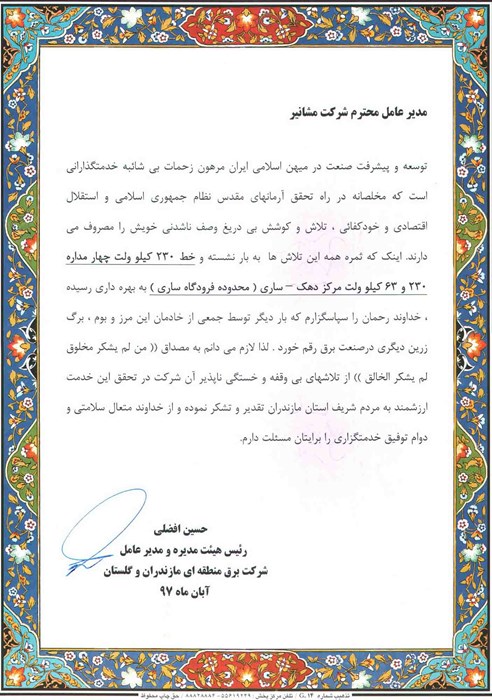 مدیر عامل محترم شرکت مشانیر
توسعه و پیشرفت صنعت در میهن اسلامی ایران مرهون زحمات بی شائبه خدمتگذارانی
است که مخلصانه در راه تحقق آرمانهای مقدس نظام جمهوری اسلامی و استقلال
اقتصادی و خودکفائی ، تلاش و کوشش بی دریغ وصف ناشدنی خویش را مصروف می
دارند. اینک که ثمره همه این تلاش ها به بار نشسته و خط ۲۳۰ کیلو ولت چهار مداره
۲۳۰ و ۶۳ کیلو ولت مرکز دهک – ساری ( محدوده فرودگاه ساری ) به بهره داری رسیده
، خداوند رحمان را سپاسگزارم که بار دیگر توسط جمعی از خادمان این مرز و بوم ، برگ
زرین دیگری درصنعت برق رقم خورد . لذا لازم می دانم به مصداق (( من لم یشکر مخلوق
لم یشکر الخالق )) از تلاشهای بی وقفه و خستگی ناپذیر آن شرکت در تحقق این خدمت
ارزشمند به مردم شریف استان مازندران تقدیر و تشکر نموده و از خداوند متعال سلامتی و
دوام توفیق خدمتگزاری را برایتان مسئلت دارم.
حسین افضلی
رئیس هیئت مدیره و مدیر عامل
شرکت برق منطقه ای مازندران و گلستان
آبان ماه ۹۷
تذهیب شماره G.۱۴ / تلفن مرکز پخش : ۵۵۶۱۹۱۲۹ - ۸۸۸۲۸۸۸۲ / حق چاپ محفوظ